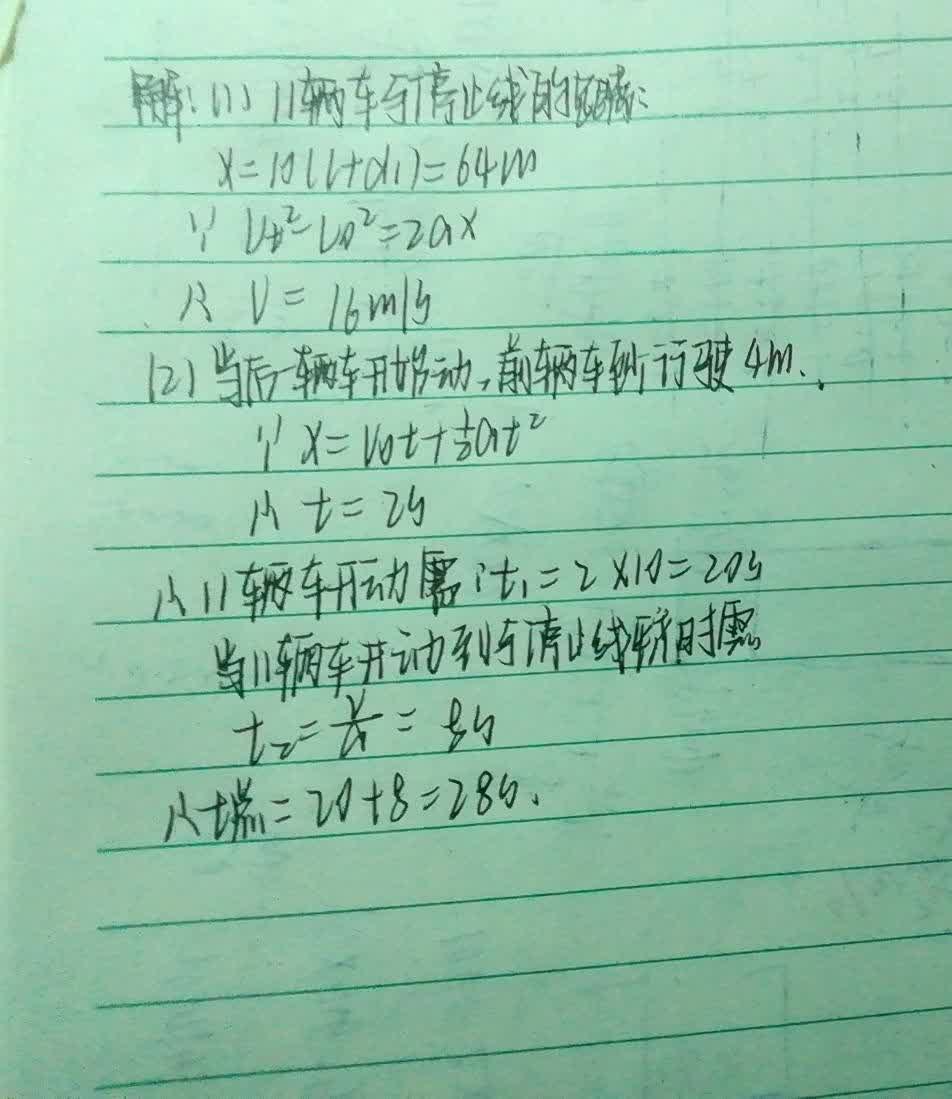 解:(1) 11辆车与停止线的距离:
x=10(l+d1)=64m
∵ Vt²-V0²=2ax
∴ V=16m/s
(2)当后一辆车开始动,前辆车到行驶4m.
∵ x=V0t+½at²
∴ t=2s
∴11辆车开动需:t₁=2×10=20s
当11辆车开动到与停止线平齐时需
t₂=v/a=8s
∴t=20+8=28s.